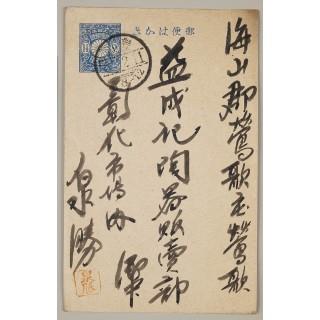 郵便はがき
海山郡鶯歌庄鶯歌
益成記陶器販賣部
彰化市場内
泉勝